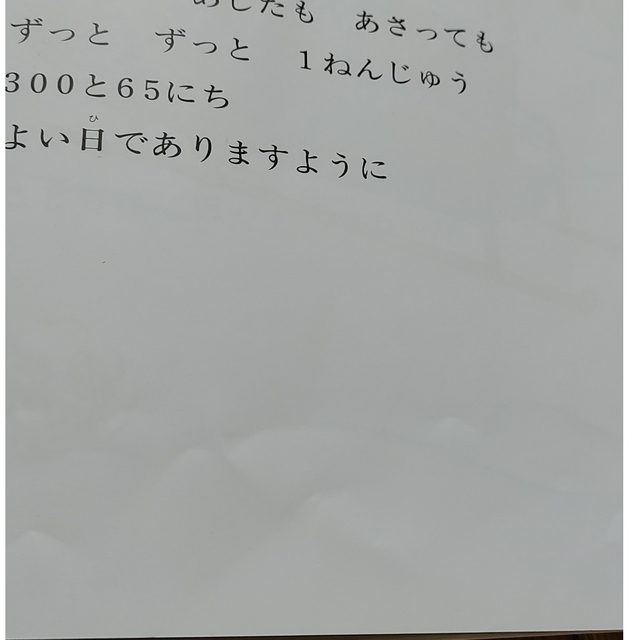 あしたも　あさっても
ずっと　ずっと　１ねんじゅう
３００と６５にち
よい日でありますように
ひ